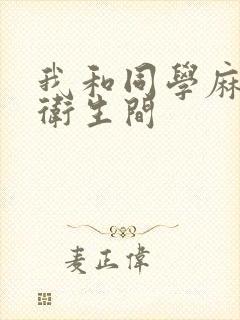 我和同學麻
衛生間
麦正偉